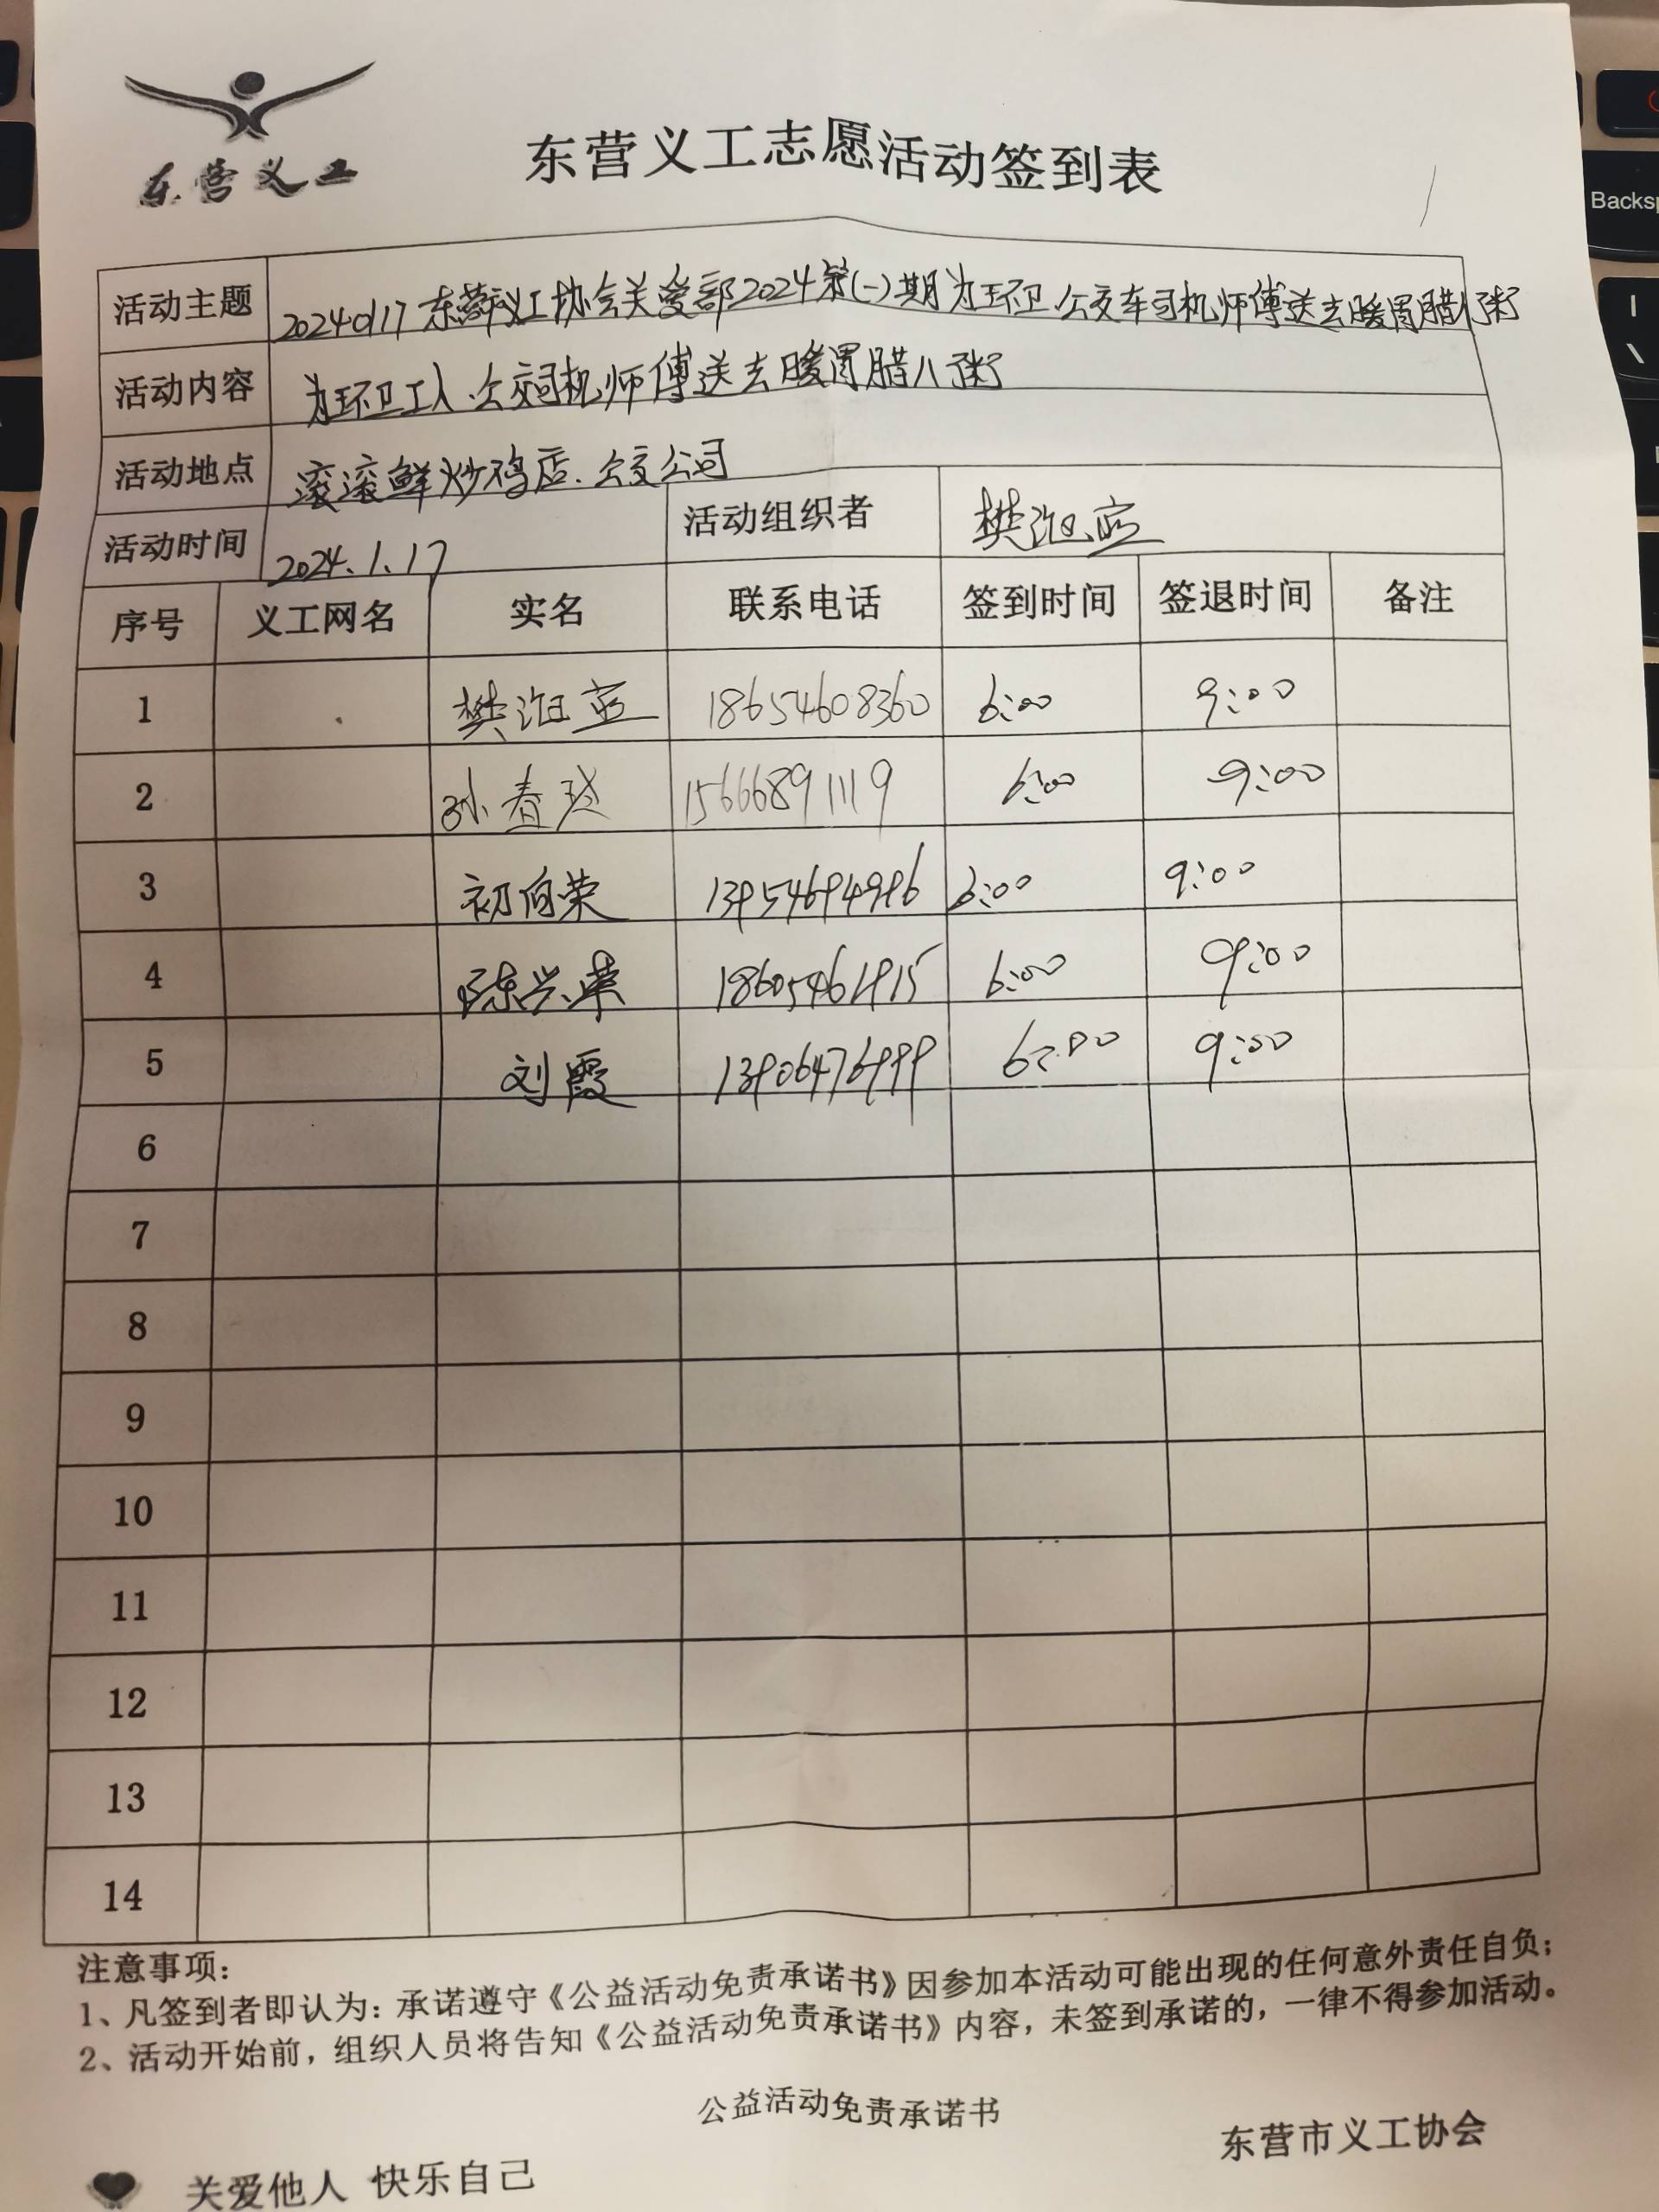 东营义工
东营义工志愿活动签到表
Backsp
活动主题 20240117东营义工协会关爱部2024第(一)期为环卫.公交车司机师傅送去暖胃腊八粥
活动内容 为环卫工人.公交司机师傅送去暖胃腊八粥
活动地点 滚滚鲜炒鸡店.公交公司
活动时间 2024.1.17 活动组织者 樊
序号 义工网名 实名 联系电话 签到时间 签退时间 备注
1 樊 18654608360 6:00 9:00
2 孙春玲 15666891119 6:00 9:00
3 初向荣 13954694986 6:00 9:00
4 陈兴荣 6:00 9:00
5 刘霞 13906476999 6:00 9:00
6
7
8
9
10
11
12
13
14
注意事项：
1、凡签到者即认为：承诺遵守《公益活动免责承诺书》因参加本活动可能出现的任何意外责任自负；
2、活动开始前，组织人员将告知《公益活动免责承诺书》内容，未签到承诺的，一律不得参加活动。
公益活动免责承诺书
东营市义工协会
关爱他人 快乐自己